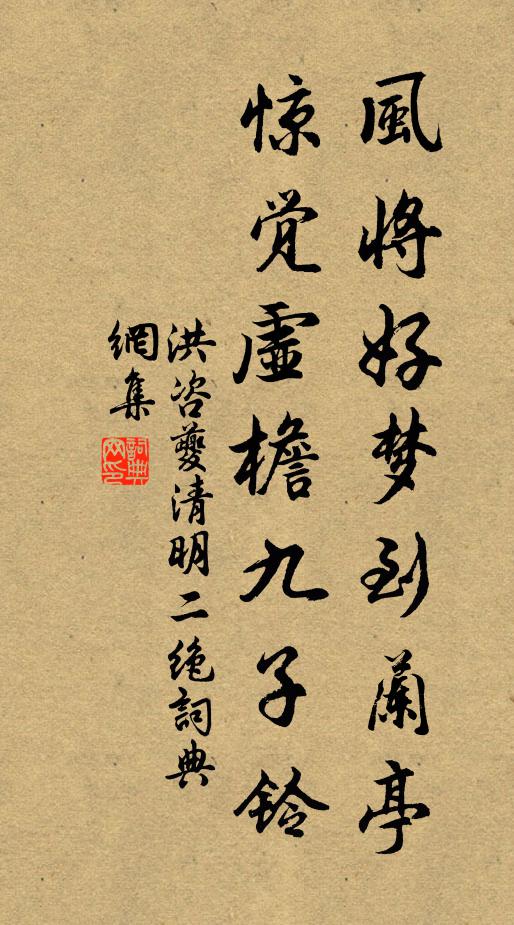 風將好梦到蘭亭
惊觉虚檐九子鈴
洪咨夔清明二绝詞典
網集
詞典
网印